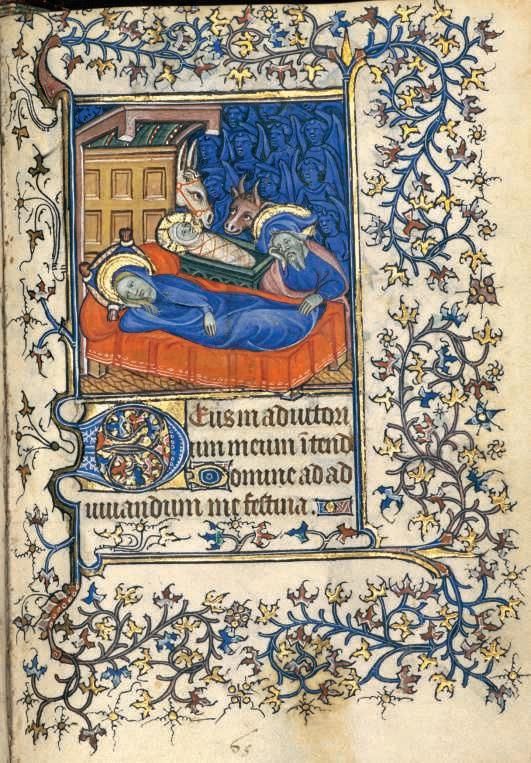 Deus in adiutori
um meum ītend
Domine ad ad
iuuandum me festina.
65